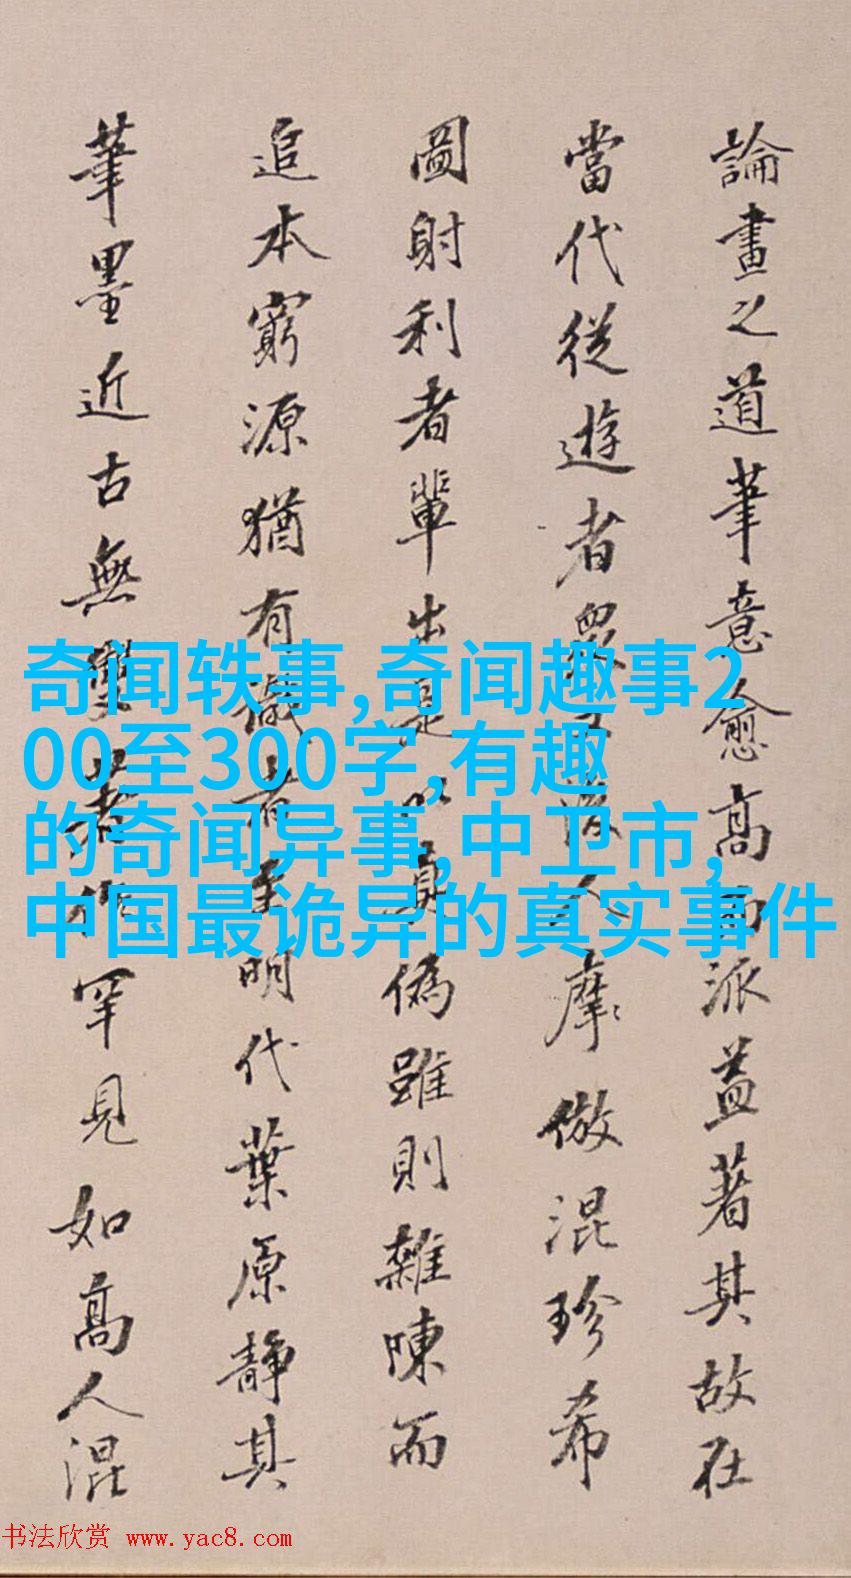 論畫之道筆意愈高而派益著其故在
當代從遊者眾後人摩倣混珍希
圖射利者輩出是以真偽雖則雜陳而
追本窮源猶有識者至明代葉原靜其
筆墨近古無雙著作罕見如高人混
奇闻轶事,奇闻趣事2
00至300字,有趣
的奇闻异事,中卫市,
中国最诡异的真实事件
书法欣赏 www.yac8.com